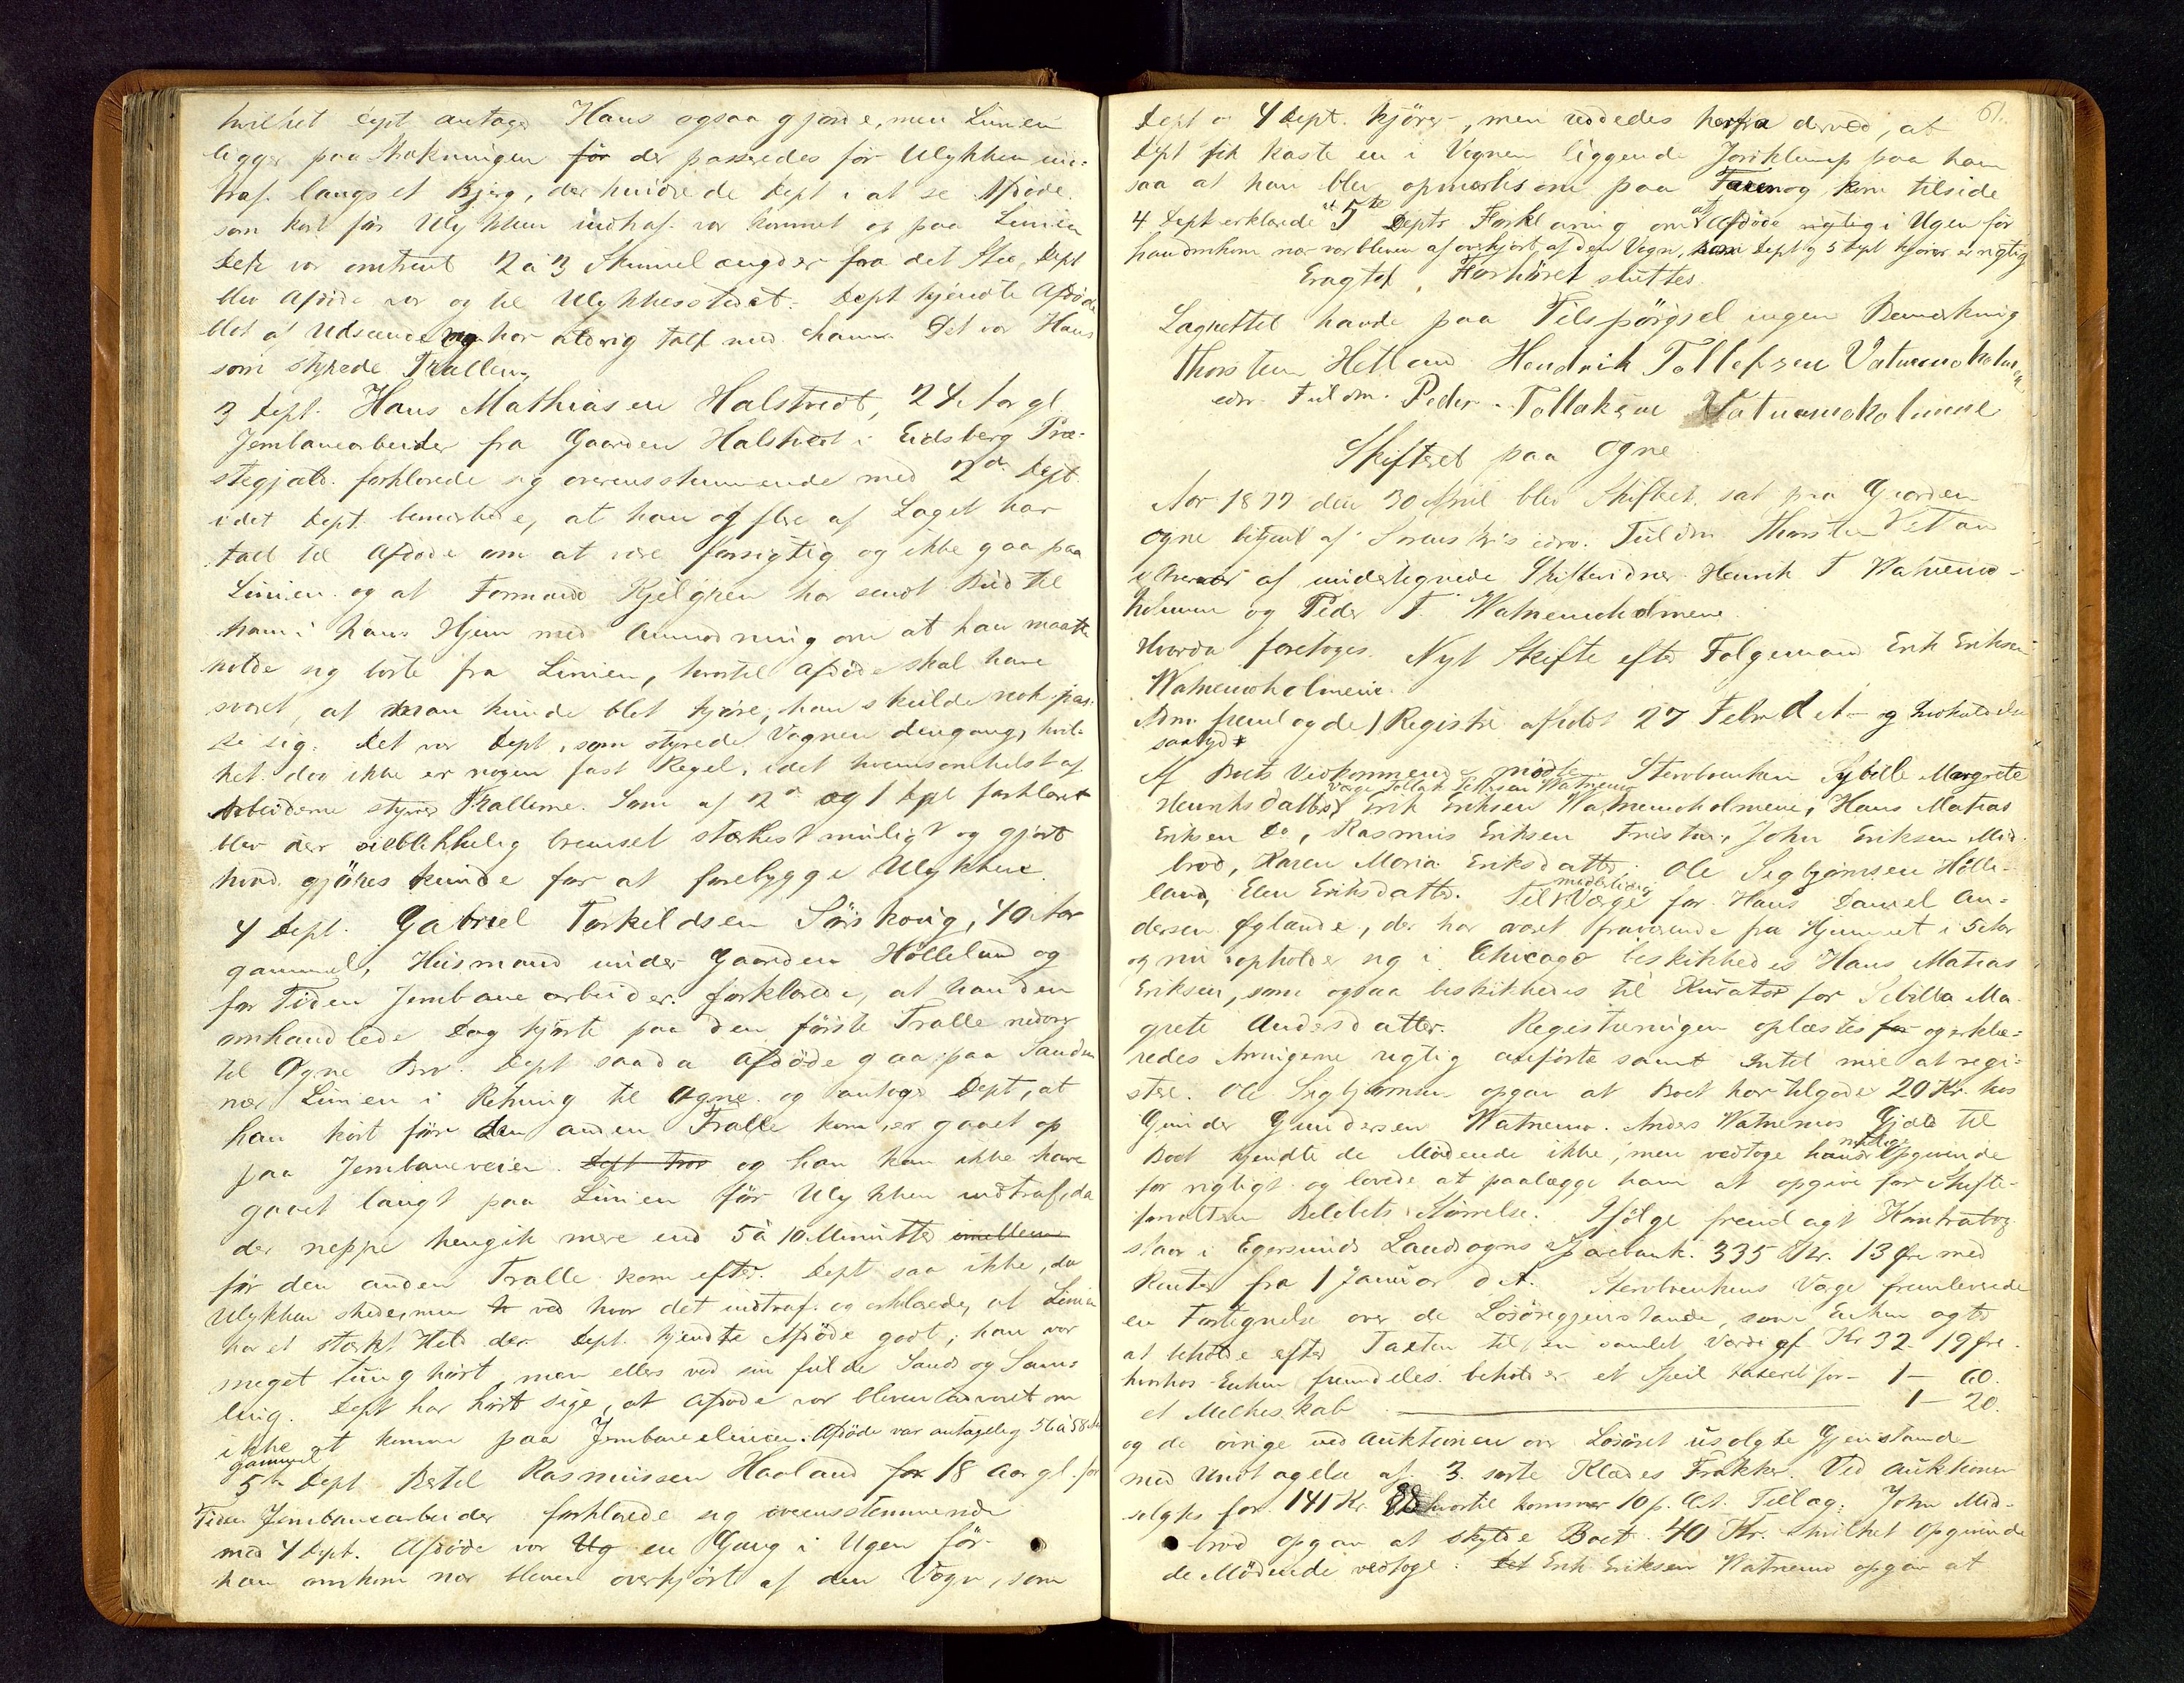 hvilket Dept antager Hans ogsaa gjorde, men Linien
ligger paa Strækningen før der passeredes før Ulykken ind-
traf langs et Bjerg, der hindrede Dept i at se Afdøde
som kort før Ulykken indtraf var kommet op paa Linien
Dette var omtrent 2 à 3 Skinnelængder fra det Sted, Dept
blev Afdøde var og til Ulykkesstedet. Dept kjendte Afdøde
blot af Udseende og har aldrig talt med ham. Det var Hans
som styrede Trallen.
3 Dept. Hans Mathiasen Halstvedt, 24 Aar gl
Jernbanearbeider fra Gaarden Halstvedt i Eidsberg Præ-
stegjæld. forklarede sig overensstemmende med 2det Dept.
idet Dept. bemærkede, at han og flere af Laget har
talt til Afdøde om at være forsigtig og ikke gaa paa
Linien og at Formand Kjelgren har sendt Bud til
ham i hans Hjem med Anmodning om at han maatte
holde sig borte fra Linien, hvortil Afdøde skal have
svaret, at man kunde blot kjøre, han skulde nok pas-
se sig. Det var Dept, som styrede Vognen dengang, hvil-
ket der ikke er nogen fast Regel, idet hvemsomhelst af
Arbeiderne styrer Trallerne. Som af 2det og 1 Dept forklaret
blev der øieblikkelig bremset stærkest muligt og gjort
hvad gjøres kunde for at forebygge Ulykken.
4 Dept. Gabriel Torkildsen Sørskoug, 40 Aar
gammel, Husmand under Gaarden Hølleland og
for Tiden Jernbanearbeider. forklarede, at han den
omhandlede Dag kjørte paa den første Tralle nedover
til Ogne Bro. Dept saa da Afdøde gaa paa Sanden
nær Linien i Retning til Ogne og antoges Dept, at
han kort før den anden Tralle kom, er gaaet op
paa Jernbaneveien. Dept tror og han kan ikke have
gaaet langt paa Linien før Ulykken indtraf, da
der neppe hengik mere end 5 à 10 Minutter imellem
før den anden Tralle kom efter. Dept saa ikke, da
Ulykken skede, men ved hvor det indtraf og erklærede, at Linien
har et stærkt Held der. Dept. kjendte Afdøde godt; han var
meget tunghørt, men ellers ved sin fulde Sands og Sam-
ling. Dept har hørt sige, at Afdøde var bleven advaret om
ikke at komme paa Jernbanelinien. Afdøde var antagelig 56 à 58 Aar
gammel
5te Dept Bertel Rasmussen Haaland for 18 Aar gl. for
Tiden Jernbanearbeider forklarede sig overensstemmende
med 4 Dept. Afdøde var Ug en Gang i Ugen før
han omkom nær bleven overkjørt af den Vogn, som
61.
Dept og 4 Dept. kjører, men reddedes herfra derved, at
Dept fik kaste en i Vognen liggende Jordklump paa ham
saa at han blev opmærksom paa Faren og kom tilside
4 Dept erklærede 5te Depts Forklaring om at Afdøde rigtig i Ugen før
han omkom nær var bleven af overkjørt af den Vogn, som Dept og 5 Dept kjører er rigtig
Eragtet, Forhøret sluttes.
Lagrettet havde paa Tilspørgsel ingen Bemærkning
Thorsten Hetland Hendrik Tollefsen Vatnemoholmen
edv. Fuldm. Peder Tollaksen Vatnemoholmene
Skifteret paa Ogne
Aar 1877 den 30 April blev Skifteret sat paa Gaarden
Ogne betjent af Sorenskr's edv. Fuldm. Thorsten Hetlan
i Overvær af undertegnede Skiftevidner Henrik T Watnemo-
holmen og Peder T. Watnemoholmene
Hvorda foretoges. Nyt Skifte efter Følgemand Erik Eriksen
Watnemoholmene.
Adm. fremlagde 1) Registr. afholdt 27 Febr d. A. og Indkaldelse
saalyd *
Af Boets Vedkommende mødte Stervboenken Sybille Margrete
værge Tollak Tollefsen Watnemo
Henriksdatter, Erik Eriksen Watnemoholmene, Hans Matias
Eriksen Do, Rasmus Eriksen Tuestad, John Eriksen Mid-
brød, Karen Maria Eriksdatter, Ole Sigbjørnsen Hølle-
land, Elen Eriksdatter. Til midlertidig Værge for Hans Daniel An-
dersen Øglænde, der har været fraværende fra Hjemmet i 5 Aar
og nu opholder sig i Chicago beskikkedes Hans Matias
Eriksen, som ogsaa beskikkedes til Kurator for Sibilla Ma-
grete Andersdatter. Registreringen oplæstes for og erklæ-
redes Arvingerne rigtig anførte samt Intet mere at regi-
stre. Ole Sigbjørnsen opgav at Boet har tilgode 20 Kr. hos
Gunder Gundersen Watnemo. Anders Watnemos Gjæld til
Boet kjendte de Mødende ikke, men vedtoge hans mulige Opgivende
for rigtigt og lovede at paalægge ham at opgive for Skifte-
forvalteren Beløbets Størrelse. Ifølge fremlagt Kontrabog
staar i Egersunds Landsogns Sparebank 335 Kr. 13 Øre med
Renter fra 1 Januar d. A. Stervboenkens Værge fremleverede
en Fortegnelse over de Løsøregjenstande, som Enken agted
at beholde efter Taxten til en samlet Værdi af Kr 32. 19 Øre.
hvorhos Enken fremdeles beholder et Speil taxeret for - 1 - 60.
et Melkeskab 1 - 20.
og de øvrige ved Auktionen over Løsøret usolgte Gjenstande
med Undtagelse af 3 sorte Klædes Frakker. Ved Auktionen
solgtes for 141 Kr. 88 hvortil kommer 10 p. Ct. Tillag. John Mid-
brød opgav at skylde Boet 40 Kr. hvilket Opgivende
de Mødende vedtoge. Det Erik Eriksen Watnemo opgav at